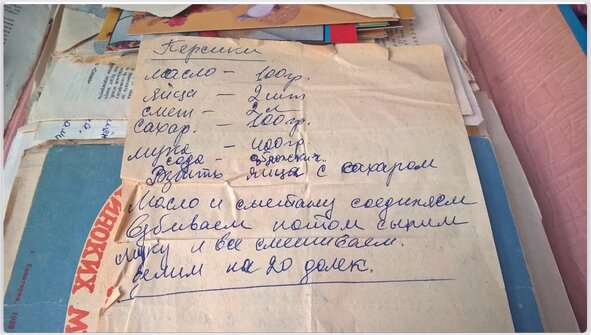 Персики
масло - 100гр.
яйца - 2 шт
смет - 2 л
сахар. - 100гр.
мука - 400гр
сода -
Взбить яйца с сахаром
Масло и сметану соединяем
взбиваем потом сыпим
муку и все смешиваем.
делим на 20 долек.
ИНОКИХ М
1989